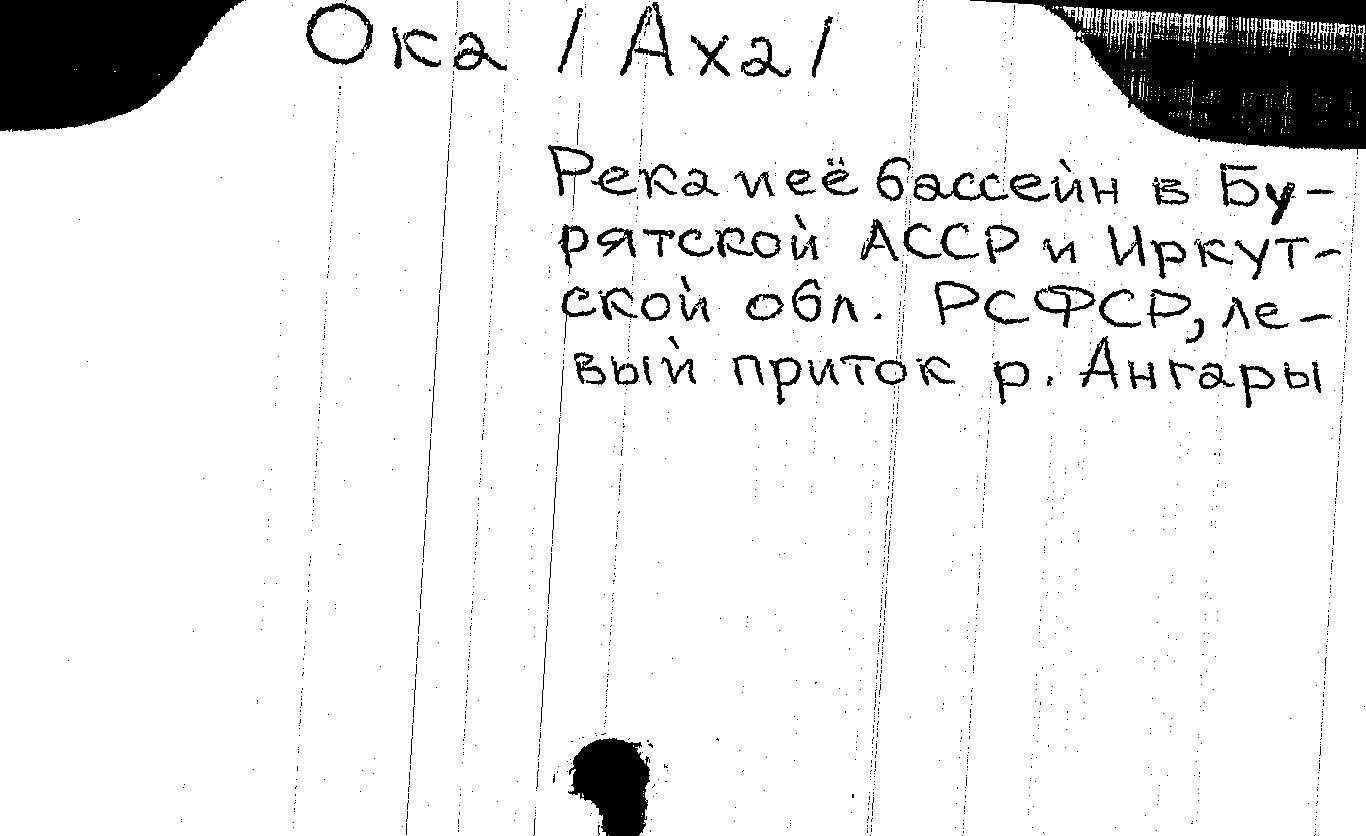 Ока /Аха/
Река и её бассейн в Бу-
рятской АССР и Иркут-
ской обл. РСФСР, ле-
вый приток р. Ангары